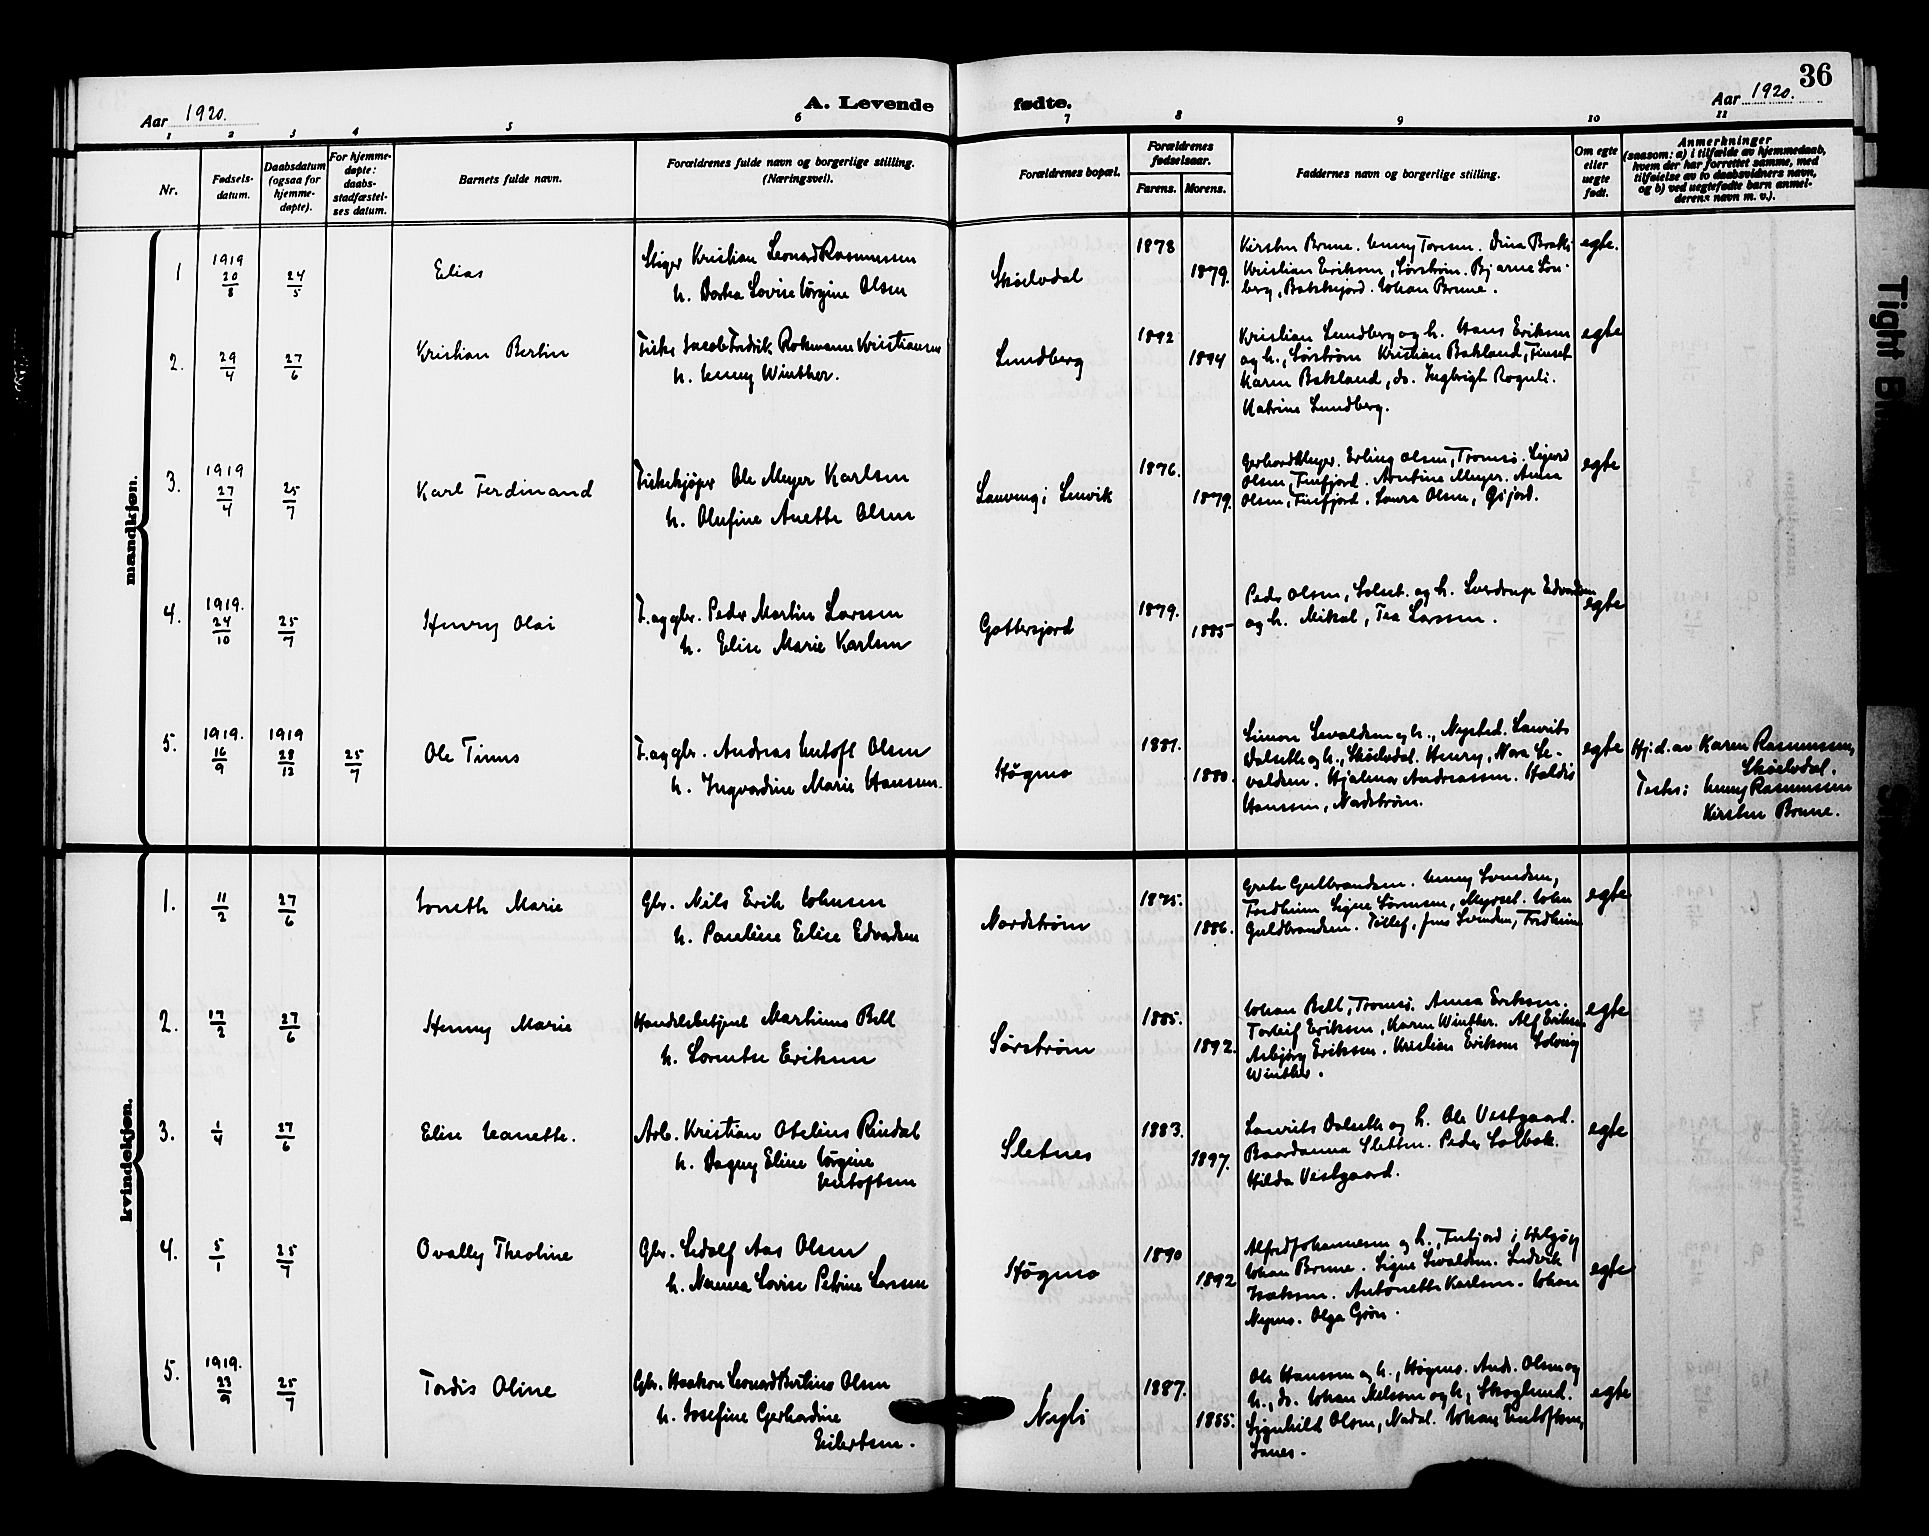 36
Aar 1920.
A. Levende fødte.
Aar 1920.
1 2 3 4 5 6 7 8 9 10 11
Nr.
Fødsels-
datum.
Daabsdatum
(ogsaa for
hjemme-
døpte).
For hjemme-
døpte:
daabs-
stadfæstel-
ses datum.
Barnets fulde navn.
Forældrenes fulde navn og borgerlige stilling.
(Næringsvei).
Forældrenes bopæl.
Forældrenes
fødselsaar.
Farens. Morens.
Faddernes navn og borgerlige stilling.
Om egte
eller
uegte
født.
Anmerkninger
(saasom: a) i tilfælde av hjemmedaab,
hvem der har forrettet samme, med
tilføielse av to daabsvidners navn,
og b) ved uegtefødte barn anmel-
derens navn m. v.).
mandkjøn.
1
1919
20/8
24/5
Elias
Kristian Leonard Rasmussen
h. Dorthea Lovise Jørgine Olsen
Skøelvdal
1878
1879.
Kirsten Brune. Jenny Toresen.
Kristian Eriksen, Sørstrøm. Bjarne
Johan Brune.
egte.
2.
29/4
27/6
Kristian Berlin
Fisker Jacob Fredrik Kristiansen
h. Jenny Winther.
Lundberg
1892
1894
Kristian Lundberg og h. Hans Eriksen
og h., Sørstrøm Kristian Bakland, Finset
Karen Bakland, do. Ingbrigt Rognli.
Katrine Lundberg.
egte
3.
1919
27/4
25/7
Karl Ferdinand
Fiskekjøper Ole Meyer Karlsen
h. Olufine Anette Olsen
i Lenvik
1876.
1879.
Gerhard Meyer. Erling Olsen, Tromsø. Sigurd
Olsen, Finfjord. Arntine Meyer. Anna
Olsen, Finfjord. Laura Olsen, Gifjord.
egte
4.
1919.
24/10
25/7
Henry Olai
F. og gbr. Peder Martin Larsen
h. Elise Marie Karlsen
Gottersjord
1879.
1885
Peder Olsen, Solset. og h. Sverdrup Edvardsen
og h. Mikal, Tea Larssen.
egte
5.
1919.
16/9
1919
28/12
25/7
Ole Tinus
F. og gbr. Andreas Entoft Olsen
h. Ingvardine Marie Hansen.
Høgmo
1881.
1880.
Simon Sevaldsen og h., Nysted. Laurits
Dalseth og h., Skøelvdal. Henry, Nora Se-
valdsen. Hjalmar Andreassen. Haldis
Hanssen, Nordstrøm.
egte
Hj.d. av Karen Rasmussen,
Skøelvdal.
Testes: Jenny Rasmussen
Kirsten Brune.
kvindekjøn.
1.
11/2
27/6
Joneth Marie
Gbr. Nils Erik Johnsen
h. Pauline Elise Edvardsen
Nordstrøm
1875.
1886.
Grete Gulbrandsen. Jenny Svendsen,
Fredheim Signe Sørensen, Myrset. John
Guldbrandsen. Tellef, Jens Svendsen, Fredheim
egte
2.
17/2
27/6
Henny Marie
Handelsbetjent Martinus Bell
h. Lorentse Eriksen
Sørstrøm
1885.
1892.
Johan Bell, Tromsø. Anna Eriksen.
Torleif Eriksen, Karen Winther. Alf Eriksen
Asbjørg Eriksen. Kristian Eriksen Solveig
Winther.
egte
3.
1/4
27/6
Elise Jeanette.
Arb. Kristian Obelius Rindal
h. Dagny Eline Jørgine
Entoftsen
Sletnes
1883.
1897.
Laurits Dalseth og h. Ole Vestgaard.
Slettsen. Peder Solbak.
Hilda Vestgaard.
egte
4.
5/1
25/7
Ovally Theoline
Gbr. Sedolf Aas Olsen
h. Nanna Lovise Petrine Larsen
Høgmo
1890
1892
Alfred Johannesen og h., i Helgøy
Johan Brune. Signe Sevaldsen. Ludvik
Isaksen. Antonette Karlsen. Johan
Nymo. Olga Grøn.
egte
5.
1919.
23/9
25/7
Tordis Oline
Gbr. Haakon Leonard Bertinus Olsen
h. Josefine Gerhardine
Eilertsen.
Nyli
1887.
1885.
Ole Hanssen og h., Høgmo. Andr. Olsen og
h., do. Johan Nelssen og h, Skoglund.
Signhild Olsen, Johan Entoftsen,
Sanes.
egte
Tight